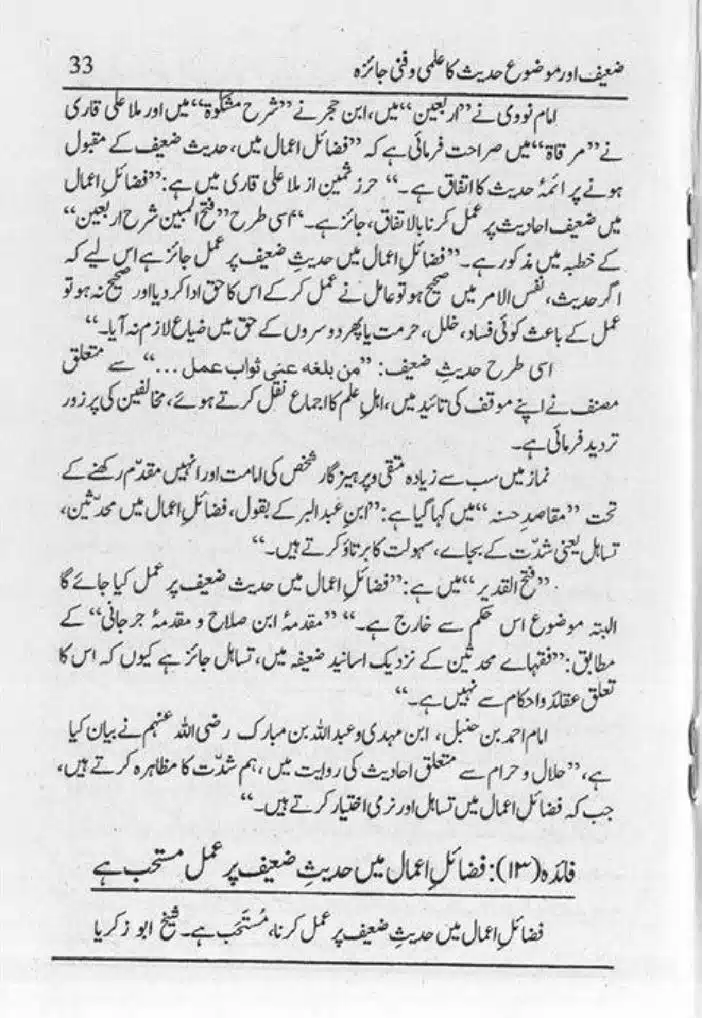 ضعیف اور موضوع حدیث کا علمی و فنی جائزہ 33
امام نووی نے ”اربعین“ میں، ابن حجر نے ”شرح مشکوٰۃ“ میں اور ملا علی قاری
نے ”مرقاۃ“ میں صراحت فرمائی ہے کہ ”فضائل اعمال میں، حدیث ضعیف کے مقبول
ہونے پر ائمۂ حدیث کا اتفاق ہے۔“ حرز ثمین از ملا علی قاری میں ہے: ”فضائلِ اعمال
میں ضعیف احادیث پر عمل کرنا بالاتفاق، جائز ہے۔“ اسی طرح ”فتح المبین شرح اربعین“
کے خطبہ میں مذکور ہے۔ ”فضائلِ اعمال میں حدیثِ ضعیف پر عمل جائز ہے اس لیے کہ
اگر حدیث، نفس الامر میں صحیح ہو تو عامل نے عمل کر کے اس کا حق ادا کر دیا اور صحیح نہ ہو تو
عمل کے باعث کوئی فساد، خلل، حرمت یا پھر دوسروں کے حق میں ضیاع لازم نہ آیا۔“
اسی طرح حدیثِ ضعیف: ”من بلغه عنی ثواب عمل ...“ سے متعلق
مصنف نے اپنے موقف کی تائید میں، اہلِ علم کا اجماع نقل کرتے ہوئے، مخالفین کی پر زور
تردید فرمائی ہے۔
نماز میں سب سے زیادہ متقی و پرہیزگار شخص کی امامت اور انہیں مقدّم رکھنے کے
تحت ”مقاصدِ حسنہ“ میں کہا گیا ہے: ”ابن عبد البر کے بقول، فضائلِ اعمال میں محدثین،
تساہل یعنی شدّت کے بجاے، سہولت کا برتاؤ کرتے ہیں۔“
”فتح القدیر“ میں ہے: ”فضائلِ اعمال میں حدیث ضعیف پر عمل کیا جائے گا
البتہ موضوع اس حکم سے خارج ہے۔“ ”مقدمۂ ابن صلاح و مقدمۂ جرجانی“ کے
مطابق: ”فقہاے محدثین کے نزدیک اسانید ضعیفہ میں، تساہل جائز ہے کیوں کہ اس کا
تعلق عقائد و احکام سے نہیں ہے۔“
امام احمد بن حنبل، ابن مہدی و عبد اللہ بن مبارک رضی اللہ عنہم نے بیان کیا
ہے، ”حلال و حرام سے متعلق احادیث کی روایت میں، ہم شدّت کا مظاہرہ کرتے ہیں،
جب کہ فضائل اعمال میں تساہل اور نرمی اختیار کرتے ہیں۔“
فائدہ (۱۳): فضائلِ اعمال میں حدیثِ ضعیف پر عمل مستحب ہے
فضائلِ اعمال میں حدیثِ ضعیف پر عمل کرنا، مُستَحَب ہے۔ شیخ ابو زکریا